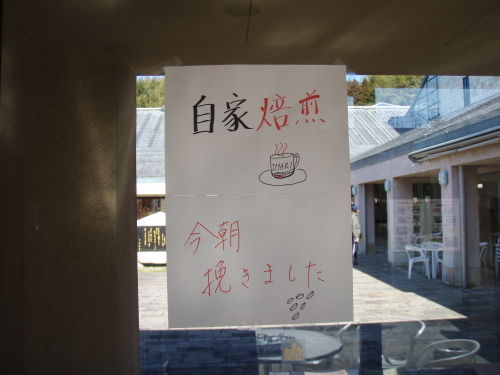 自家焙煎
今朝
挽きました